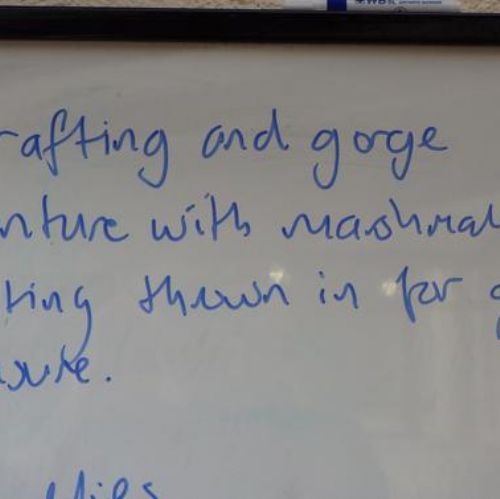 rafting and gorge
nture with mashmal
ting thrown in for g
sure.